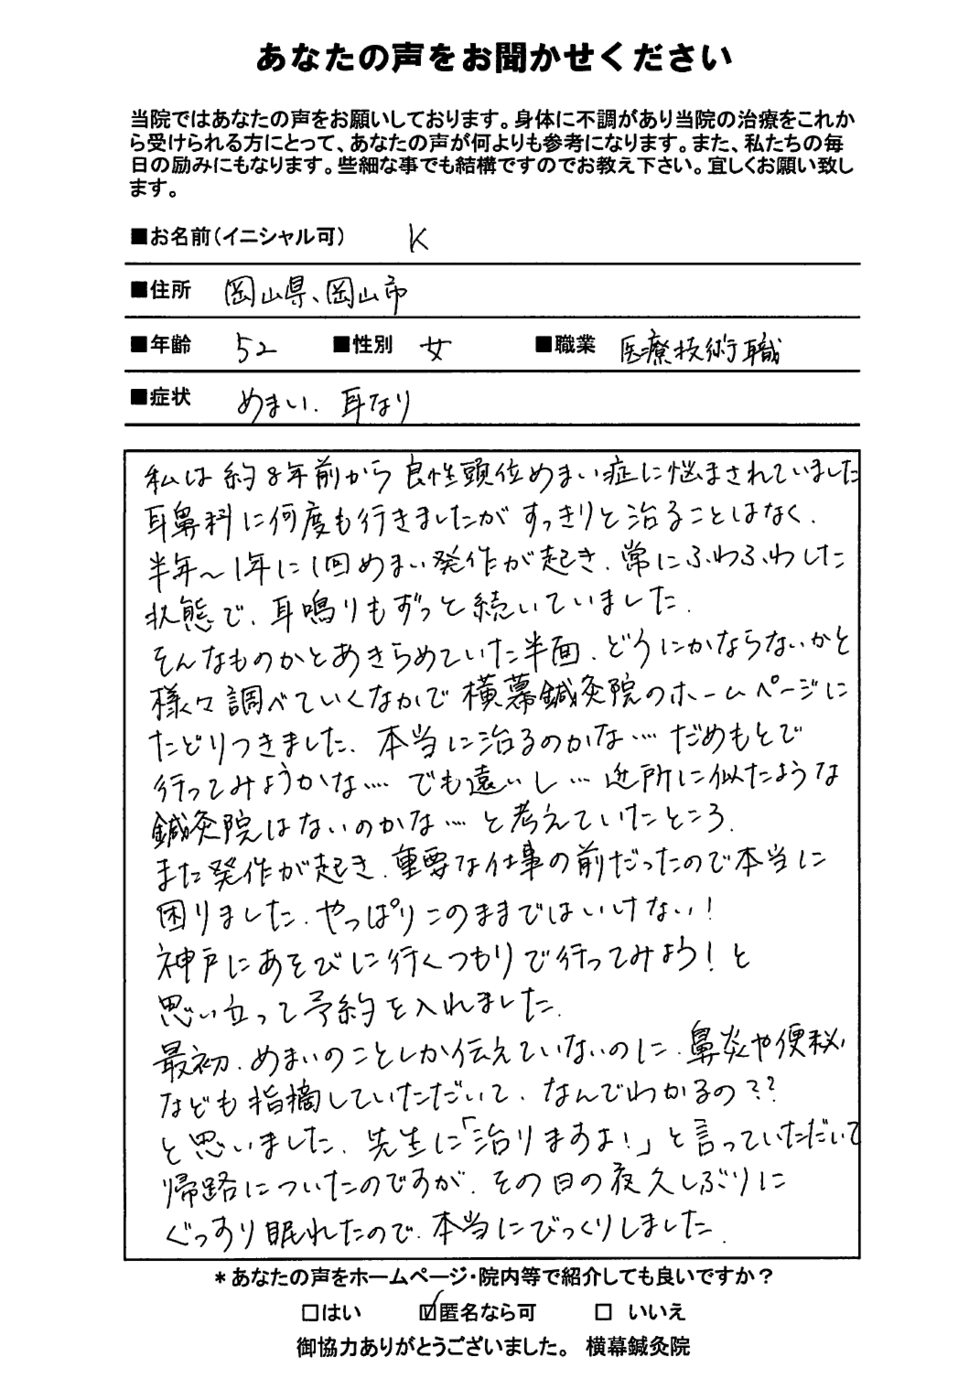 あなたの声をお聞かせください
当院ではあなたの声をお願いしております。身体に不調があり当院の治療をこれか
ら受けられる方にとって、あなたの声が何よりも参考になります。また、私たちの毎
日の励みにもなります。些細な事でも結構ですのでお教え下さい。宜しくお願い致し
ます。
■お名前（イニシャル可） K
■住所 岡山県、岡山市
■年齢 52 ■性別 女 ■職業 医療技術職
■症状 めまい、耳なり
私は約8年前から良性頭位めまい症に悩まされていました
耳鼻科に何度も行きましたがすっきりと治ることはなく、
半年～1年に1回めまい発作が起き、常にふわふわした
状態で、耳鳴りもずっと続いていました。
そんなものかとあきらめていた半面、どうにかならないかと
様々調べていくなかで横幕鍼灸院のホームページに
たどりつきました。本当に治るのかな… だめもとで
行ってみようかな… でも遠いし… 近所に似たような
鍼灸院はないのかな… と考えていたところ、
また発作が起き、重要な仕事の前だったので本当に
困りました。やっぱりこのままではいけない！
神戸にあそびに行くつもりで行ってみよう！と
思い立って予約を入れました。
最初、めまいのことしか伝えていないのに、鼻炎や便秘
なども指摘していただいて、なんでわかるの??
と思いました。先生に「治りますよ！」と言っていただいて
帰路についたのですが、その日の夜久しぶりに
ぐっすり眠れたので、本当にびっくりしました。
＊あなたの声をホームページ・院内等で紹介しても良いですか？
□はい ☑匿名なら可 □ いいえ
御協力ありがとうございました。 横幕鍼灸院